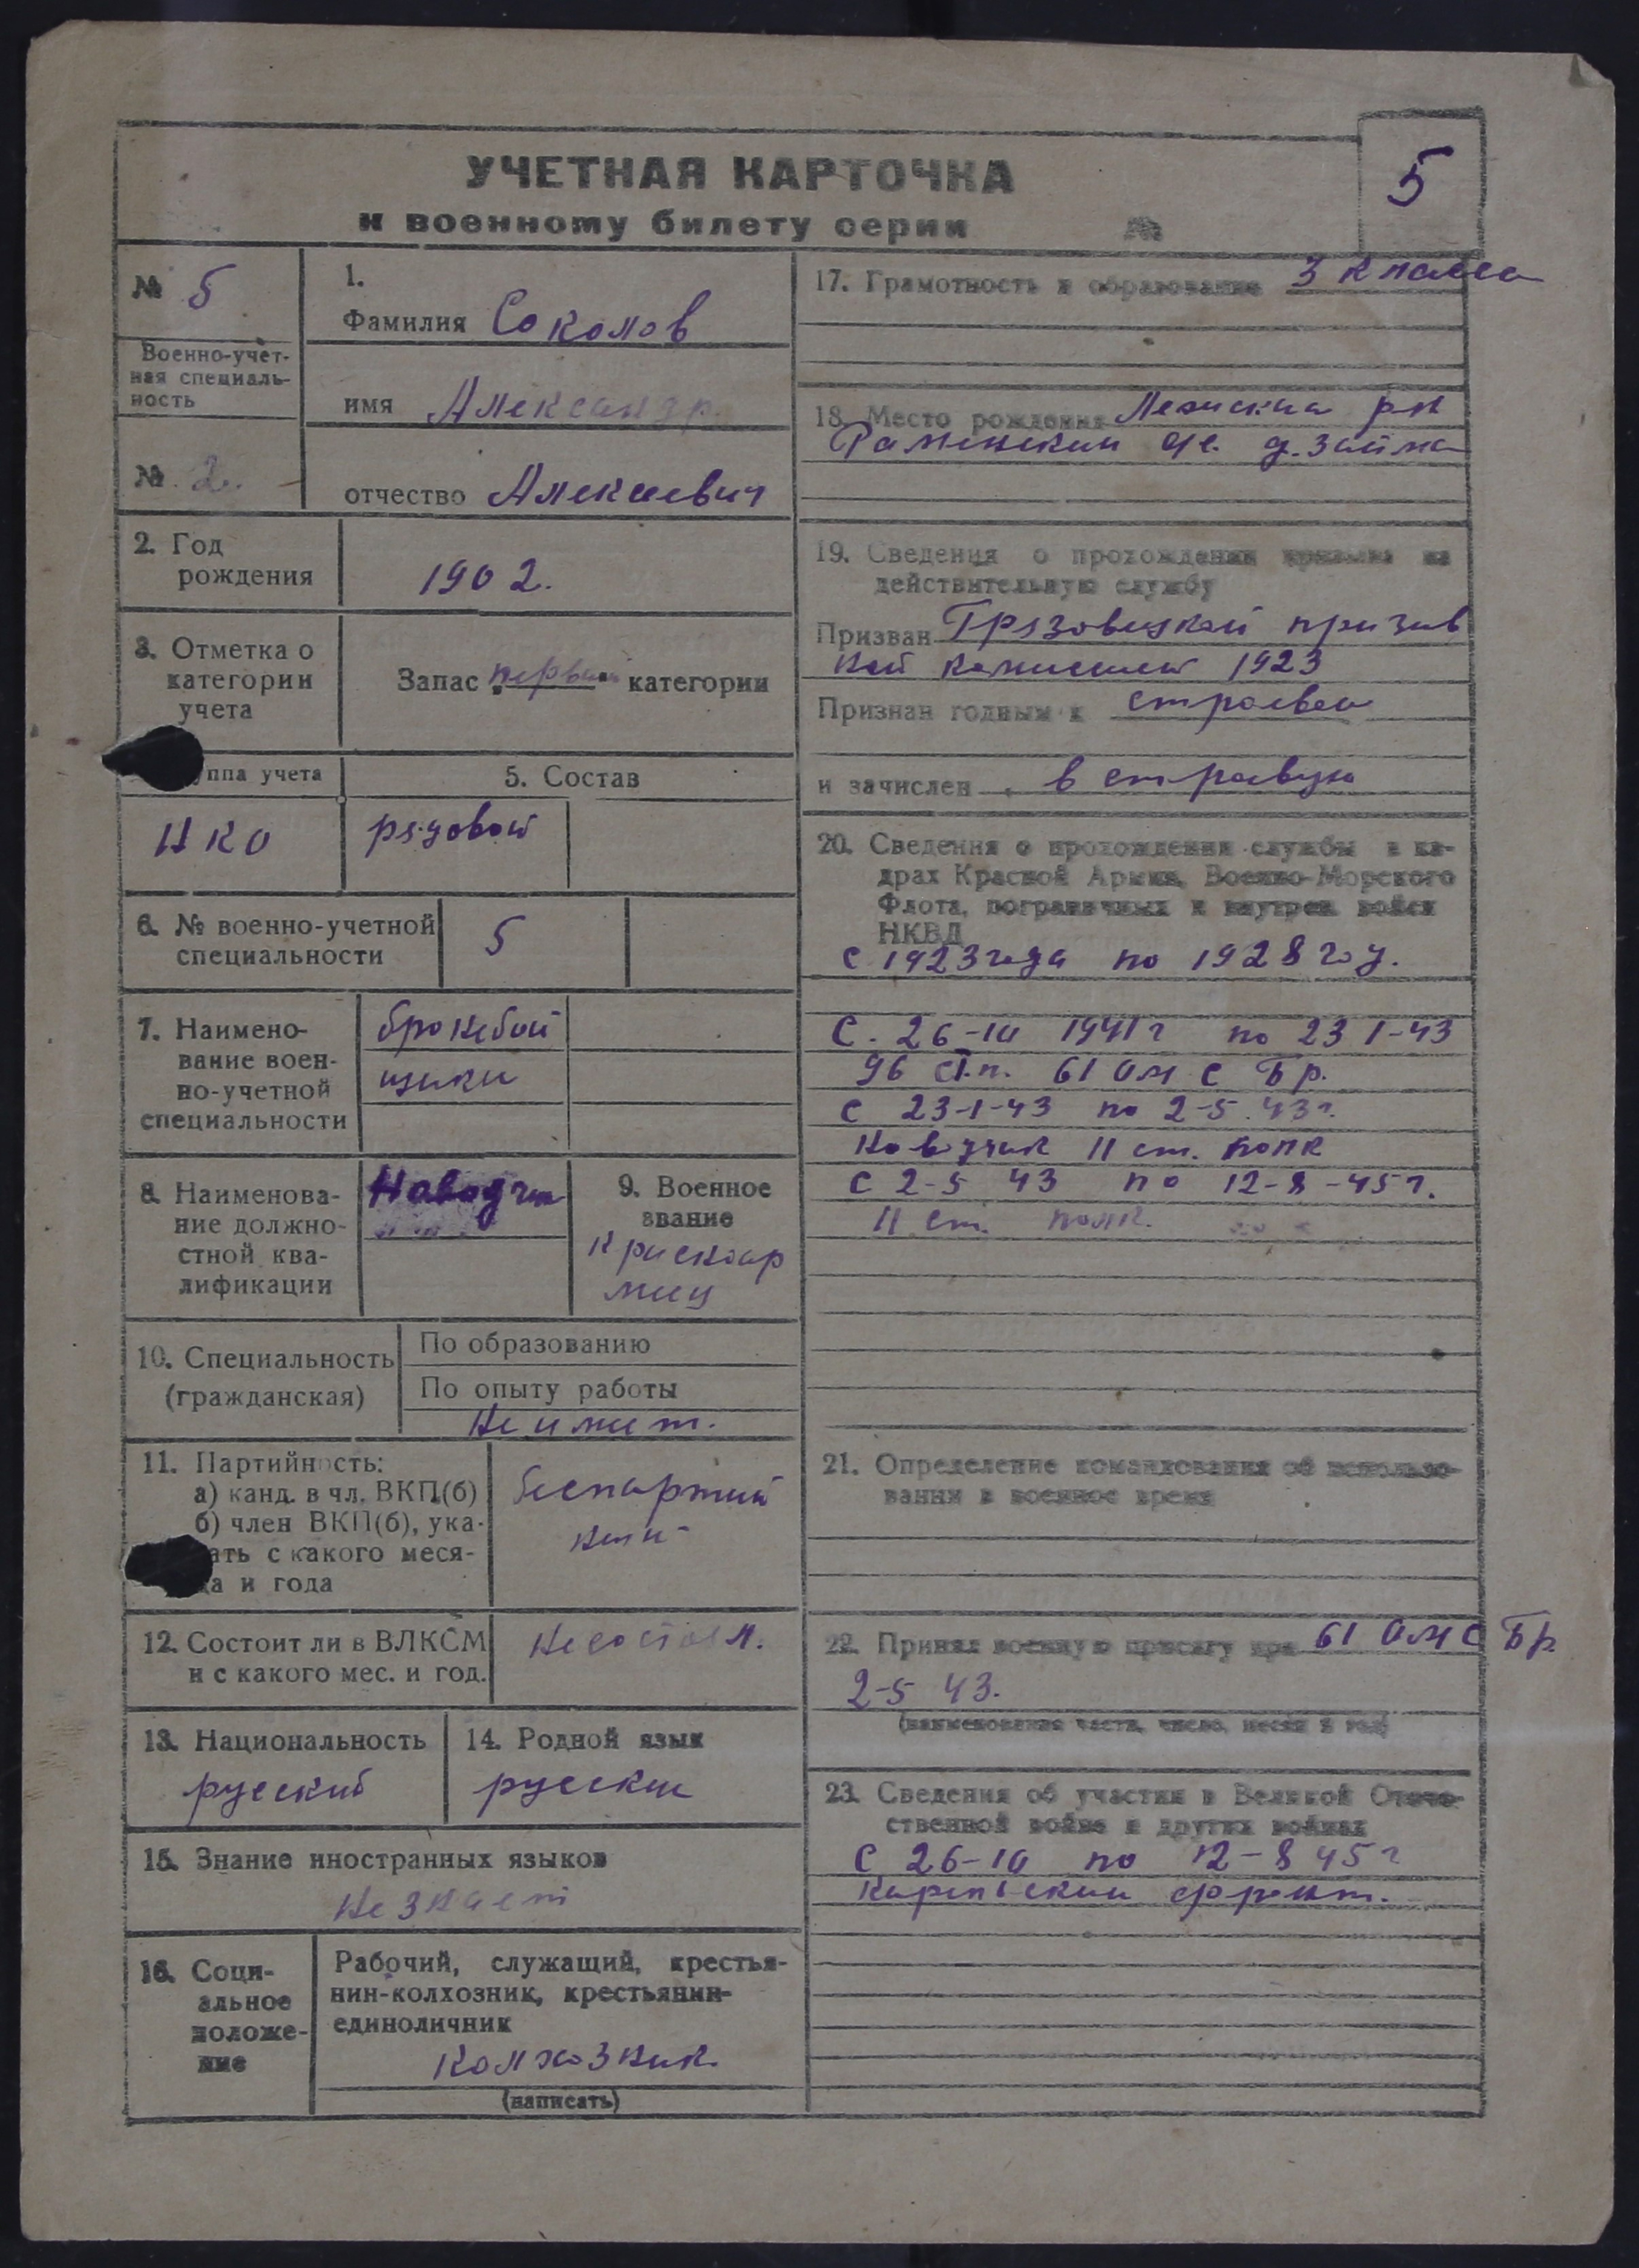 5
УЧЕТНАЯ КАРТОЧКА
к военному билету серии №
№ 5
Военно-учет-
ная специаль-
ность
№ 2.
1.
Фамилия Соколов
имя Александр.
отчество Алексеевич
2. Год
рождения
1902.
3. Отметка о
категории
учета
Запас первой категории
ппа учета
НКО
5. Состав
рядовой
6. № военно-учетной
специальности
5
7. Наимено-
вание воен-
но-учетной
специальности
бронебой
щики
8. Наименова-
ние должно-
стной ква-
лификации
Наводчик
9. Военное
звание
Красноар
меец
10. Специальность
(гражданская)
По образованию
По опыту работы
Не имеет.
11. Партийность:
а) канд. в чл. ВКП(б)
б) член ВКП(б), ука-
ать с какого меся-
ца и года
беспартий
ный
12. Состоит ли в ВЛКСМ
и с какого мес. и год.
Не состоял.
13. Национальность
русский
14. Родной язык
русский
15. Знание иностранных языков
Не знает
16. Соци-
альное
положе-
ние
Рабочий, служащий, крестья-
нин-колхозник, крестьянин-
единоличник
Колхозник.
(написать)
17. Грамотность и образование 3 класса
18. Место рождения р-н
д. Займа
19. Сведения о прохождении призыва на
действительную службу
Призван Грязовецкой призыв
ной комиссией 1923
Признан годным к строевой
и зачислен в строевую
20. Сведения о прохождении службы в ка-
драх Красной Армии, Военно-Морского
Флота, пограничных и внутрен. войск
НКВД
С 1923 года по 1928 год.
С. 26-10 1941 г по 23 1-43
96 ст.п. 61 ОМСБр.
С 23-1-43 по 2-5.43 г.
Наводчик 11 ст. полк
С 2-5 43 по 12-8-45 г.
11 ст. полк.
21. Определение командования об использо-
вании в военное время
22. Принял военную присягу при 61 ОМСБр.
2-5 43.
(наименование части, число, месяц и год)
23. Сведения об участии в Великой Отече-
ственной войне и других войнах
С 26-10 по 12-8 45 г
Карельский фронт.